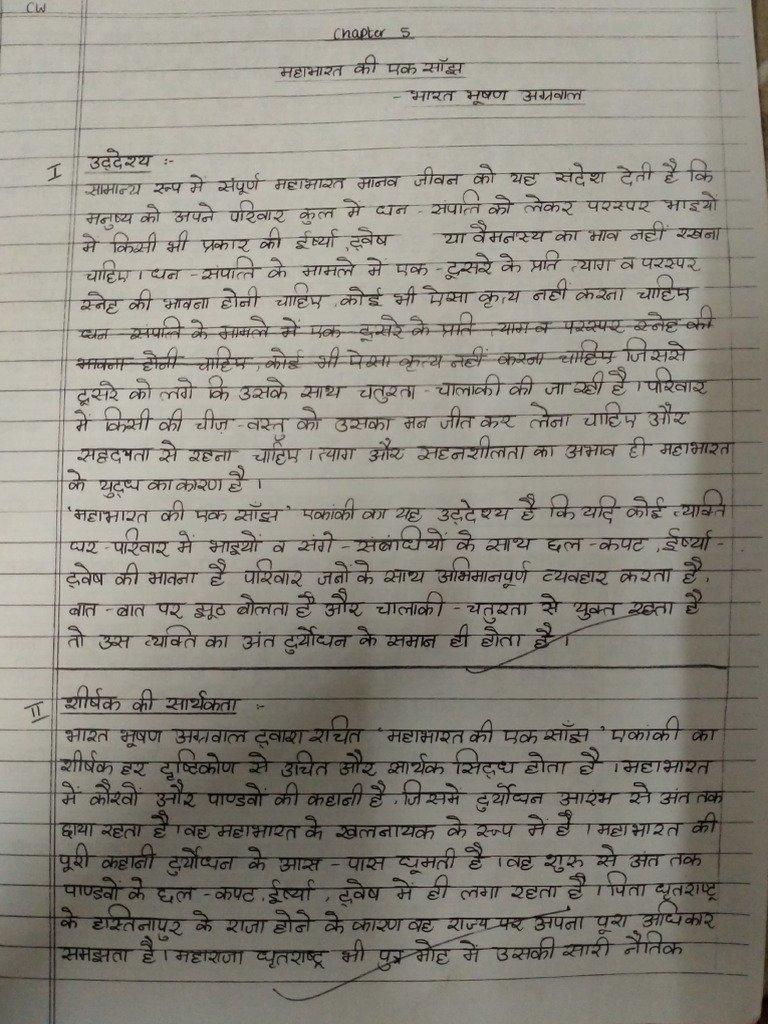 CW
Chapter 5
महाभारत की एक साँझ
- भारत भूषण अग्रवाल
I उद्देश्य :-
सामान्य रूप में संपूर्ण महाभारत मानव जीवन को यह संदेश देती है कि
मनुष्य को अपने परिवार कुल में धन - संपत्ति को लेकर परस्पर भाइयों
में किसी भी प्रकार की ईर्ष्या, द्वेष या वैमनस्य का भाव नहीं रखना
चाहिए। धन - संपत्ति के मामले में एक - दूसरे के प्रति त्याग व परस्पर
स्नेह की भावना होनी चाहिए, कोई भी ऐसा कृत्य नहीं करना चाहिए
धन - संपत्ति के मामले में एक - दूसरे के प्रति त्याग व परस्पर स्नेह की
भावना होनी चाहिए, कोई भी ऐसा कृत्य नहीं करना चाहिए जिससे
दूसरे को लगे कि उसके साथ चतुरता - चालाकी की जा रही है। परिवार
में किसी की चीज़ - वस्तु को उसका मन जीत कर लेना चाहिए और
सहृदयता से रहना चाहिए। त्याग और सहनशीलता का अभाव ही महाभारत
के युद्ध का कारण है।
'महाभारत की एक साँझ' एकांकी का यह उद्देश्य है कि यदि कोई व्यक्ति
घर - परिवार में भाइयों व सगे - संबंधियों के साथ छल - कपट, ईर्ष्या -
द्वेष की भावना है परिवार जनों के साथ अभिमानपूर्ण व्यवहार करता है,
बात - बात पर झूठ बोलता है और चालाकी - चतुरता से युक्त रहता है
तो उस व्यक्ति का अंत दुर्योधन के समान ही होता है।
II शीर्षक की सार्थकता :-
भारत भूषण अग्रवाल द्वारा रचित 'महाभारत की एक साँझ' एकांकी का
शीर्षक हर दृष्टिकोण से उचित और सार्थक सिद्ध होता है। महाभारत
में कौरवों और पाण्डवों की कहानी है, जिसमें दुर्योधन आरंभ से अंत तक
छाया रहता है। वह महाभारत के खलनायक के रूप में है। महाभारत की
पूरी कहानी दुर्योधन के आस - पास घूमती है। वह शुरू से अंत तक
पाण्डवों के छल - कपट, ईर्ष्या, द्वेष में ही लगा रहता है। पिता धृतराष्ट्र
के हस्तिनापुर के राजा होने के कारण वह राज्य पर अपना पूरा अधिकार
समझता है। महाराजा धृतराष्ट्र भी पुत्र मोह में उसकी सारी नैतिक